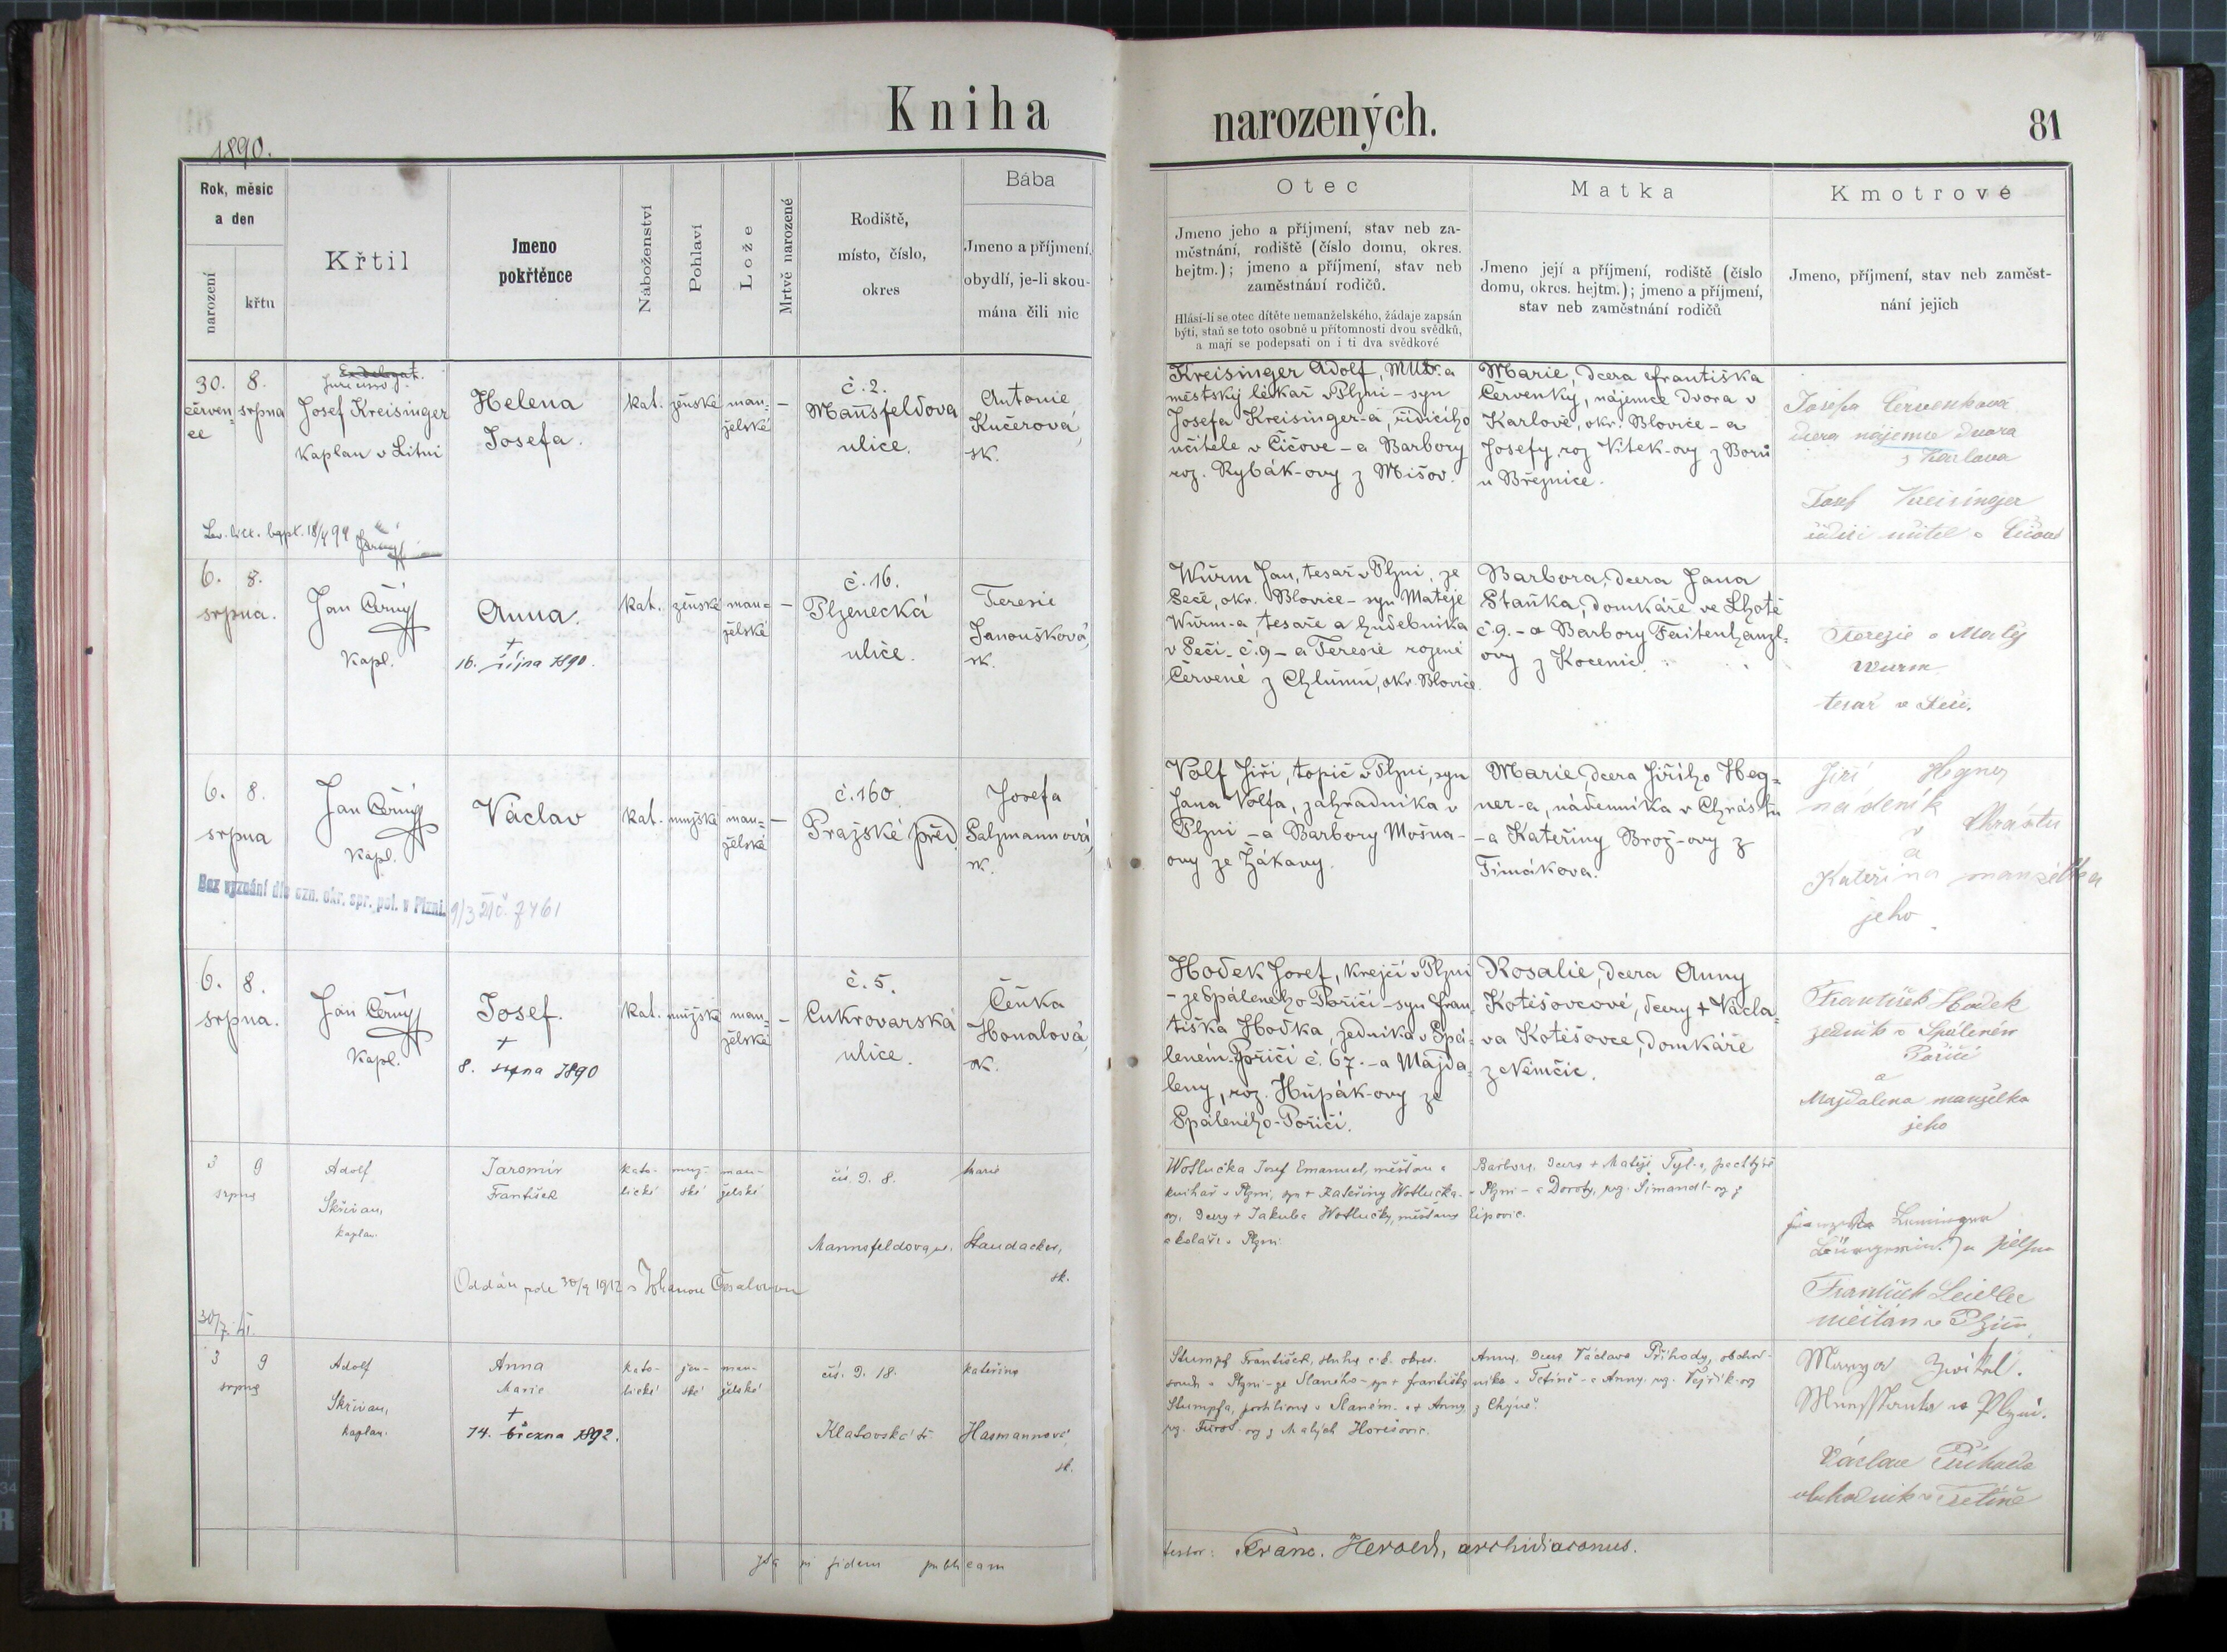 Kniha narozených.
81
1890.
Rok, měsíc
a den
narození
křtu
Křtil
Jmeno
pokřtěnce
Náboženství
Pohlaví
Lože
Mrtvě narozené
Rodiště,
místo, číslo,
okres
Bába
Jmeno a příjmení,
obydlí, je-li skou-
mána čili nic
Otec
Jmeno jeho a příjmení, stav neb za-
městnání, rodiště (číslo domu, okres.
hejtm.); jmeno a příjmení, stav neb
zaměstnání rodičů.
Hlásí-li se otec dítěte nemanželského, žádaje zapsán
býti, staň se toto osobně u přítomnosti dvou svědků,
a mají se podepsati on i ti dva svědkové
Matka
Jmeno její a příjmení, rodiště (číslo
domu, okres. hejtm.); jmeno a příjmení,
stav neb zaměstnání rodičů
Kmotrové
Jmeno, příjmení, stav neb zaměst-
nání jejich
30.
červen-
ce
8.
srpna
Ex delegat.
Josef Kreisinger
kaplan v Litni
Helena
Josefa.
kat.
ženské
man-
želské
–
č. 2.
Mansfeldova
ulice.
Antonie
Kučerová,
sk.
Kreisinger Adolf, MUDr. a
městský lékař v Plzni – syn
Josefa Kreisinger-a, řídícího
učitele v Čičově – a Barbory
roz. Rybák-ovy z Mišov.
Marie, dcera Františka
Červenky, nájemce dvora v
Karlově, okr. Blovice – a
Josefy, roz. Vitek-ovy z Borů
u Březnice.
Josefa Červenková
dcera nájemce dvora
z Karlova
Josef Kreisinger
řídící učitel v Čičově
6.
8.
srpna.
Jan Černý
kapl.
Anna.
†
16. října 1890.
kat.
ženské
man-
želské
–
č. 16.
Plzenecká
ulice.
Teresie
Janoušková,
sk.
Würm Jan, tesař v Plzni, ze
Seče, okr. Blovice – syn Matěje
Würm-a, tesaře a hudebníka
v Seči – č. 9 – a Teresie rozené
Červené z Chlumu, okr. Blovice.
Barbora, dcera Jana
Staňka, domkáře ve Lhotě
č. 9. – a Barbory Faitenhanzl-
ovy z Kocenic.
Terezie a Matěj
Wurm
tesař v Seči.
6.
8.
srpna
Jan Černý
kapl.
Václav
kat.
mužské
man-
želské
–
č. 160
Pražské před.
Josefa
Salzmannová,
sk.
Bez vyznání dle ozn. okr. spr. pol. v Plzni. 9/3 21 č. 7461
Volf Jiří, topič v Plzni, syn
Jana Volfa, zahradníka v
Plzni – a Barbory Mošna-
ovy ze Žákavy.
Marie, dcera Jiřího Heg-
ner-a, nádenníka v Chrástu
– a Kateřiny Brož-ovy z
Timákova.
Jiří Hegner
nádeník
Chrástu
a
Kateřina manželka
jeho.
6.
8.
srpna.
Jan Černý
kapl.
Josef.
†
8. srpna 1890
kat.
mužské
man-
želské
–
č. 5.
Cukrovarská
ulice.
Čeňka
Honalová,
sk.
Hodek Josef, krejčí v Plzni
– ze Spáleného Poříčí – syn Fran-
tiška Hodka, zedníka v Spá-
leném-Poříčí č. 67. – a Majda-
leny, roz. Hupák-ovy ze
Spáleného-Poříčí.
Rosalie, dcera Anny
Kotěšovcové, dcery † Václa-
va Kotěšovce, domkáře
z Němčic.
František Hodek
zedník v Spáleném
Poříčí
a
Majdalena manželka
jeho
3
9
srpna
Adolf
Skřivan,
kaplan.
Jaromír
František
kato-
lické
muž-
ské
man-
želské
čís. d. 8.
Mannsfeldova ul.
Marie
Haudacher,
sk.
Oddán 30/9 1912
Wotlučka Josef Emanuel, měšťan a
knihař v Plzni, syn † Kateřiny Wotlučka-
ovy, dcery † Jakuba Wotlučky, měšťana
a koláře v Plzni.
Barbora, dcera † Matěje Tyl-a, pachtýře
v Plzni – a Doroty, roz. Šimandl-ovy z
Lipovic.
František Seidler
měšťan v Plzni
3
9
srpna
Adolf
Skřivan,
kaplan.
Anna
Marie
†
14. března 1892.
kato-
lické
žen-
ské
man-
želské
čís. d. 18.
Klatovská tř.
Kateřina
Hasmannová,
sk.
Stumpf František, sluha c. k. okres.
soudu v Plzni – ze Slaného – syn † Františka
Stumpfa, v Slaném – a † Anny,
z Malých Horešovic.
Anna, dcera Václava Příhody, obchod-
níka v Tetíně – a Anny, roz. Vejdík-ovy
z Chýně.
Václav Příhoda
obchodník v Tetíně
fidem publicam
testor: Franc. Herold, archidiaconus.